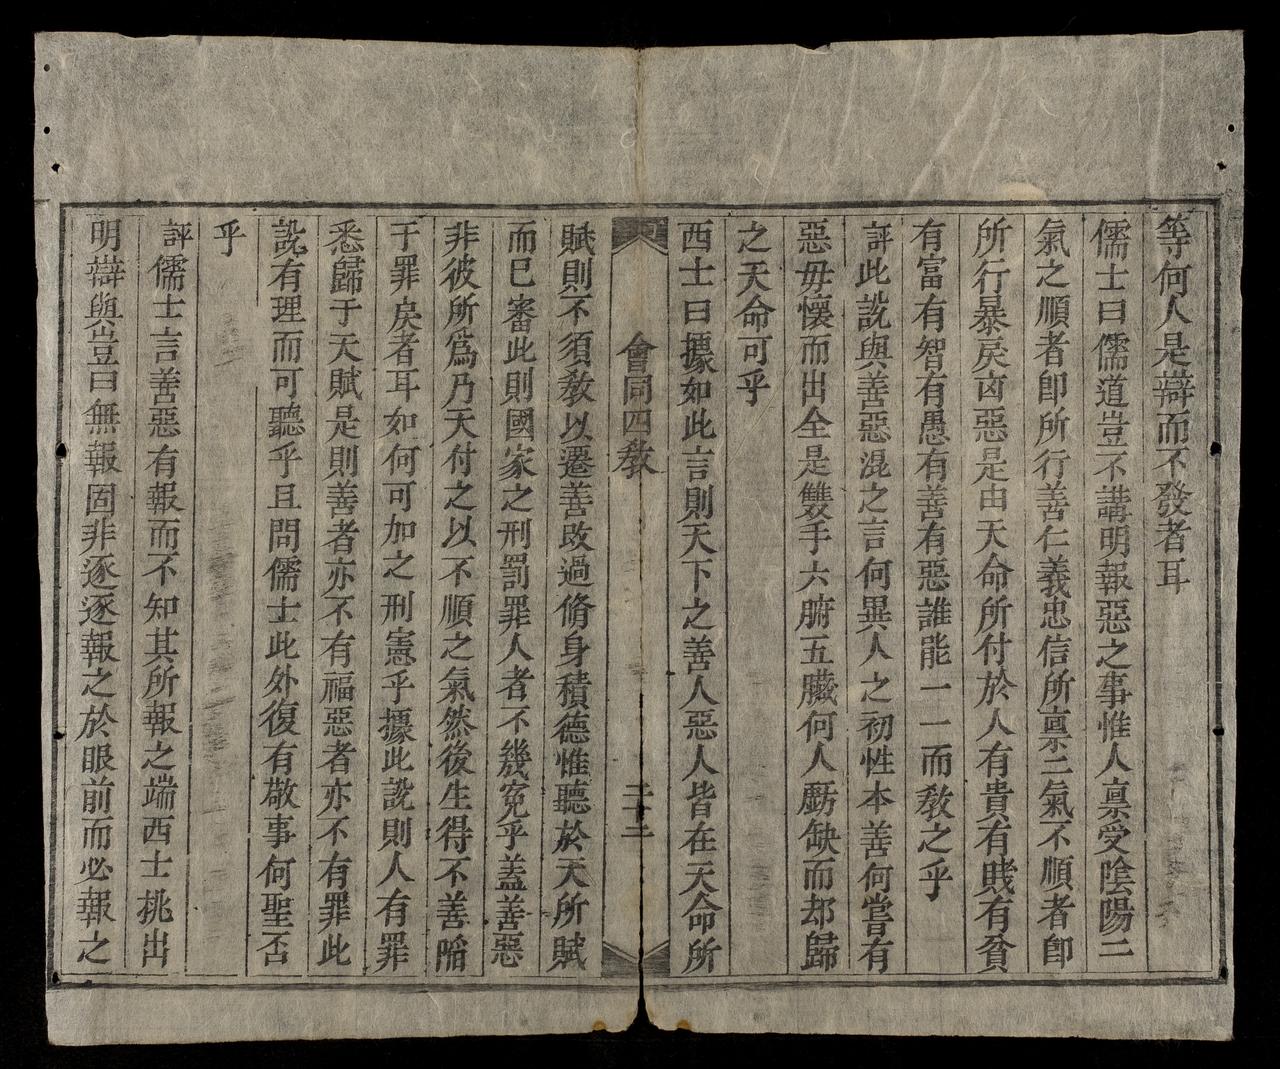 等何人是辯而不發者耳
儒士曰儒道豈不講明報惡之事惟人稟受陰陽二
氣之順者卽所行善仁義忠信所稟二氣不順者卽
所行暴戾卤惡是由天命所付於人有貴有賤有貧
有富有智有愚有善有惡誰能一一而敎之乎
評此說與善惡混之言何異人之初性本善何嘗有
惡毋懷而出全是雙手六腑五臟何人虧缺而却歸
之天命可乎
西士曰據如此言則天下之善人惡人皆在天命所
會同四敎
二十二
賦則不須敎以遷善改過脩身積德惟聽於天所賦
而巳審此則國家之刑罰罪人者不幾寃乎蓋善惡
非彼所爲乃天付之以不順之氣然後生得不善陷
于罪戾者耳如何可加之刑憲乎據此說則人有罪
悉歸于天賦是則善者亦不有福惡者亦不有罪此
說有理而可聽乎且問儒士此外復有敬事何聖否
乎
評儒士言善惡有報而不知其所報之端西士挑出
明辯與豈曰無報固非逐逐報之於眼前而必報之